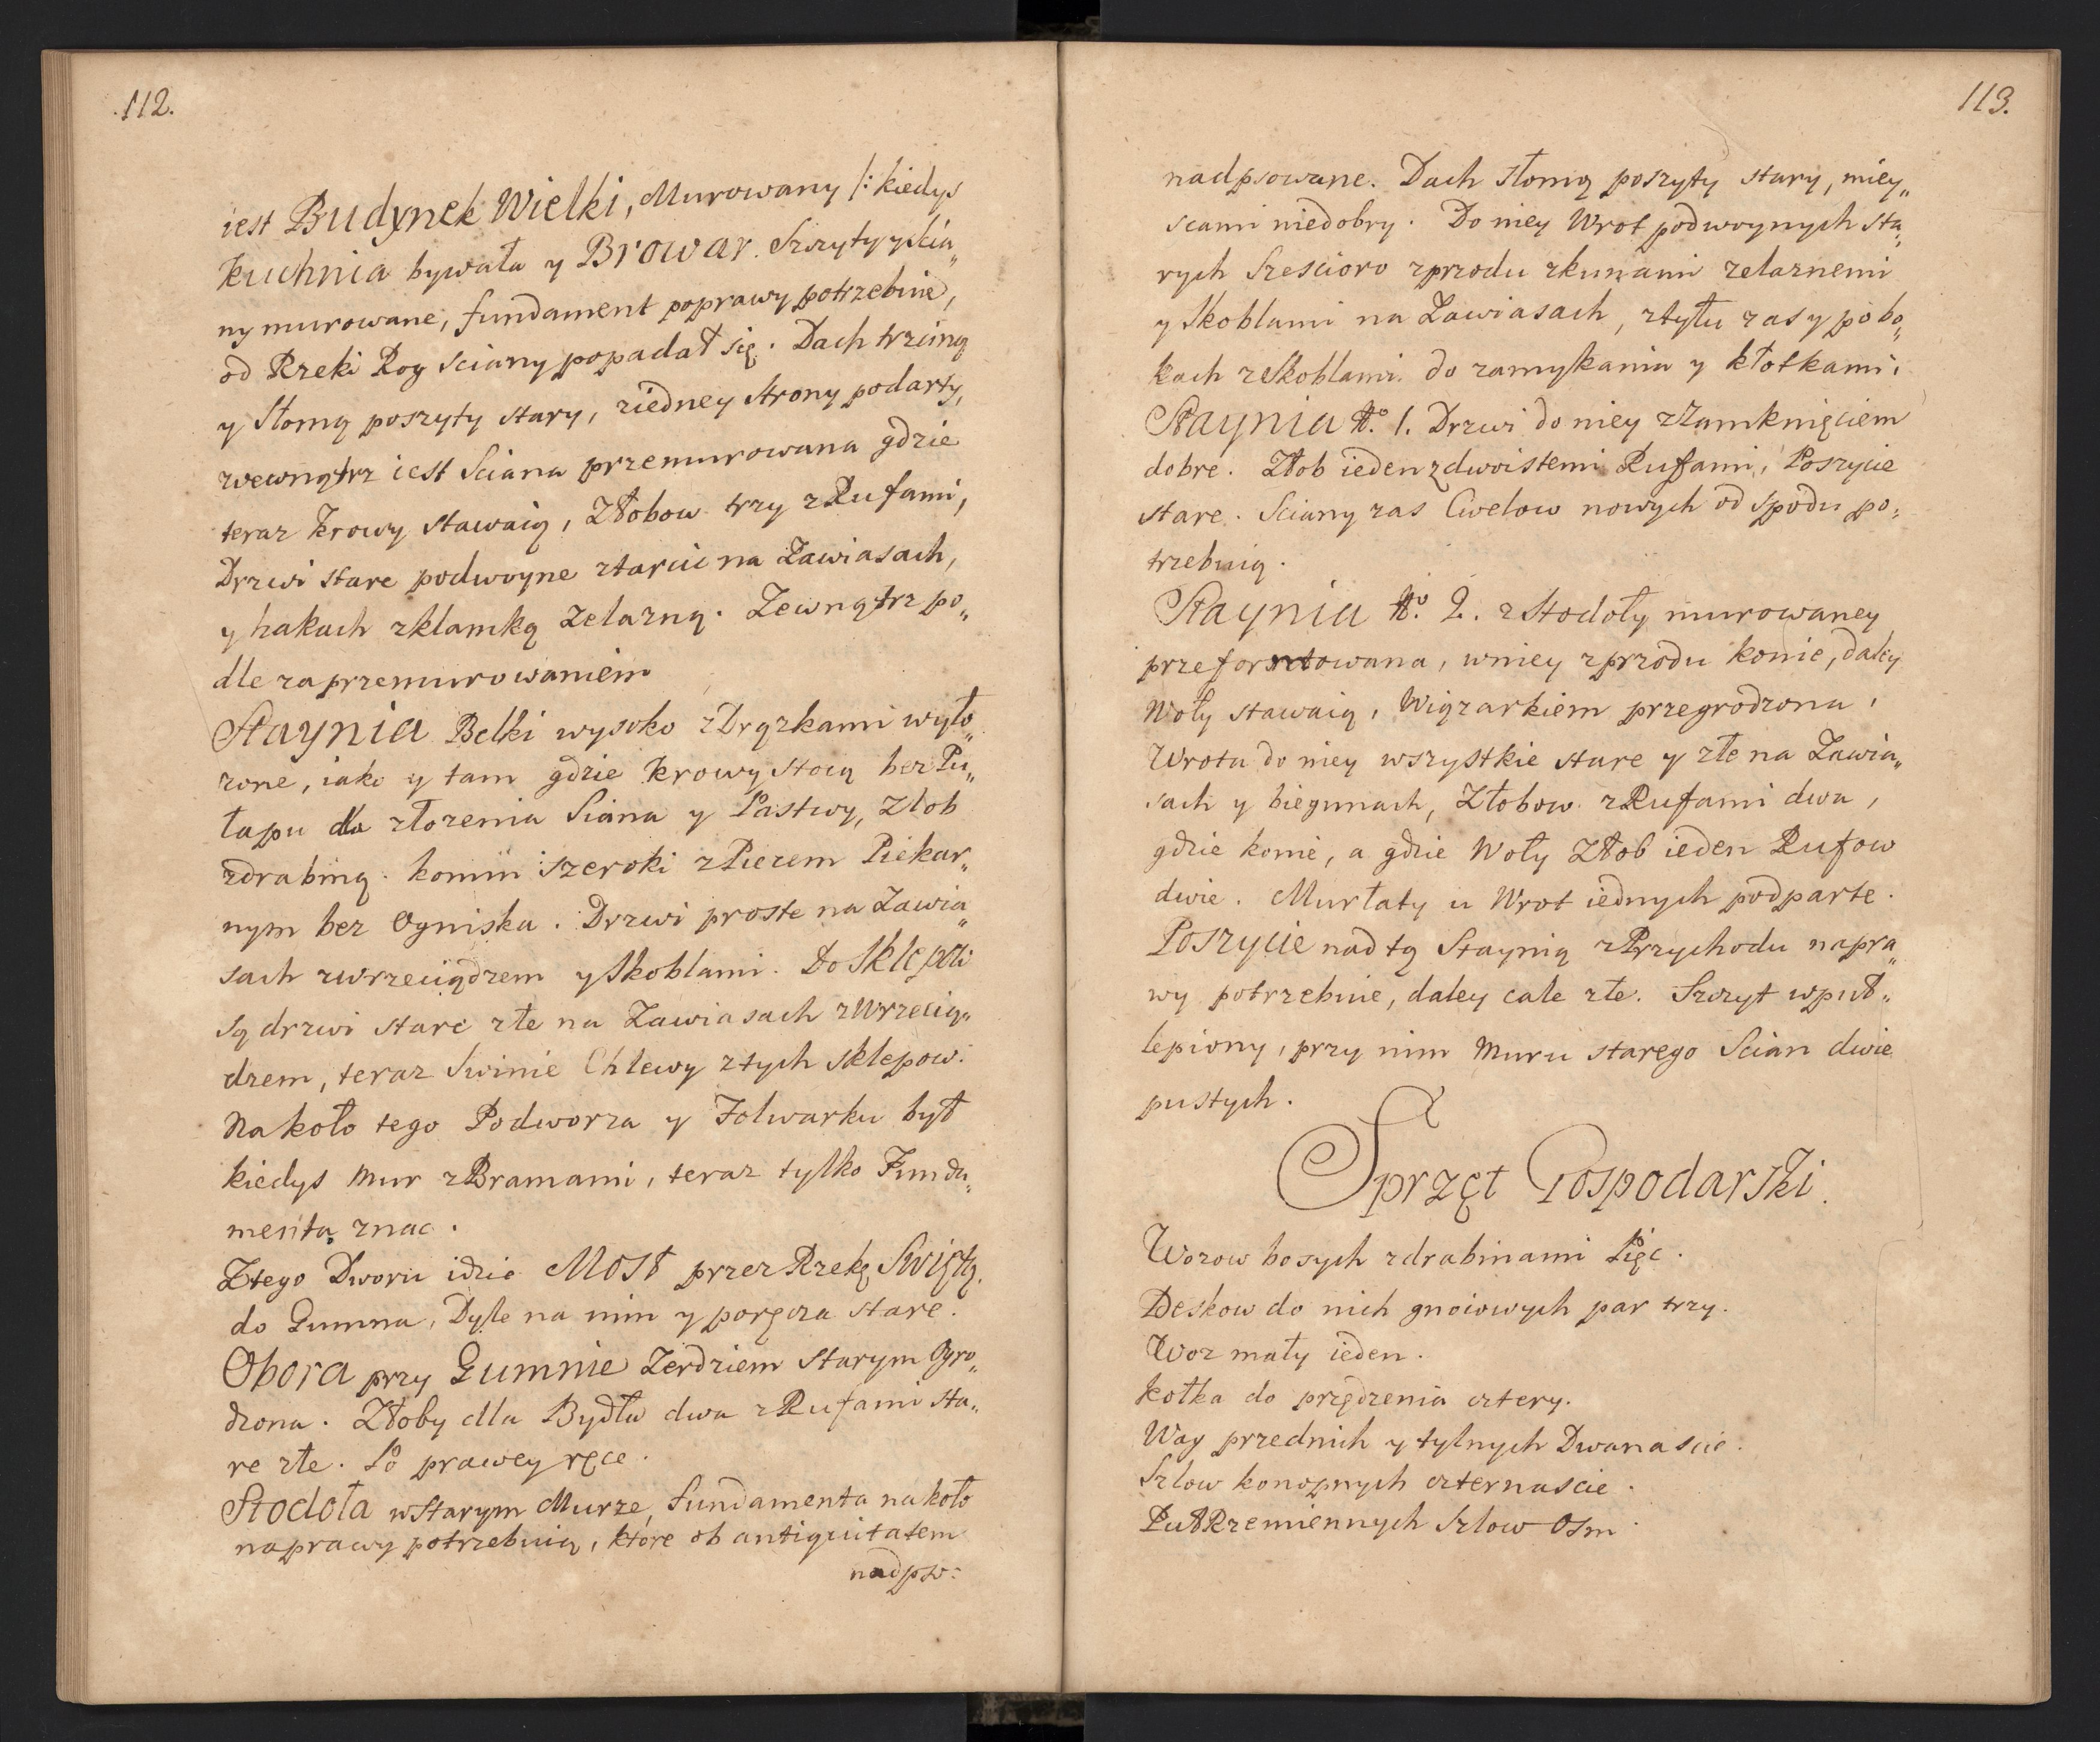 112.
iest Budynek Wielki, Murowany /: kiedys
Kuchnia bywała y Browar. Szczyty y Scia„
ny murowane, fundament poprawy potrzebuie,
od Rzeki Rog sciany popadał się. Dach trzciną
y Słomą poszyty stary, ziedney strony podarty,
wewnątrz iest Sciana przemurowana gdzie
teraz Krowy stawaią, Złobow trzy z Rufami,
Drzwi stare podwoyne ztarcic na Zawiasach,
y hakach zklamką Zelazną. Zewnątrz po„
dle za przemurowaniem
Staynia Belki wysoko z Drązkami wyło„
zone, iako y tam gdzie Krowy stoią bez Pu„
łapu dla złozenia Siana y Pastwy, Złob
zdrabiną. komin szeroki z Piecem Piekar„
nym bez Ogniska. Drzwi proste na Zawia„
sach zwrzeciądzem y Skoblami. Do Sklepow
są drzwi stare złe na Zawiasach z Wrzecią„
dzem, teraz Swinie Chlewy ztych sklepow.
Nakoło tego Podworza y Folwarku był
kiedys Mur z Bramami, teraz tylko Funda„
menta znac.
Ztego Dworu idzie Most przez Rzekę Swiętą.
do Gumna, Dyle na nim y poręcza stare.
Obora przy Gumnie Zerdziem starym Ogro„
dzona. Złoby dla Bydła dwa z Rufami sta„
re złe. Po prawey ręce.
Stodoła w Starym Murze, fundamenta na koło
naprawy potrzebuią, które ob antiquitatem
nadpso:
113.
nadpsowane. Dach słomą poszyty stary, miey„
scami niedobry. Do niey Wrot podwoynych sta„
rych Szescioro zprzodu zkunami zelaznemi
y Skoblami na Zawiasach, ztyłu zas y po bo„
kach zeskoblami do zamykania y kłotkami.
Staynia No. 1. Drzwi do niey z Zamknięciem
dobre. Złob ieden zdwoistemi Ruffami, Poszycie
stare. Sciany zas Cwelow nowych od spodu po„
trzebuią.
Staynia No. 2. z Stodoły murowaney
przeforsztowana, wniey zprzodu konie, daley
Woły stawaią, Wiązarkiem przegrodzona,
Wrota do niey wszystkie stare y złe na Zawia„
sach y biegunach, Złobow z Rufami dwa,
gdzie konie, a gdzie Woły Złob ieden Rufow
dwie. Murłaty u Wrot iednych podparte.
Poszycie nad tą Staynią z Przychodu napra„
wy potrzebuie, daley cale złe. Szczyt wpuł„
lepiony, przy nim Muru starego Scian dwie
pustych.
Sprzęt Gospodarski.
Wozow bosych zdrabinami Pięc.
Deskow do nich gnoiowych par trzy.
Woz mały ieden.
Kołka do przędzenia cztery.
Wag przednich y tylnych Dwanascie.
Szlow konopnych czternascie.
Puł Rzemiennych Szlow Osm.